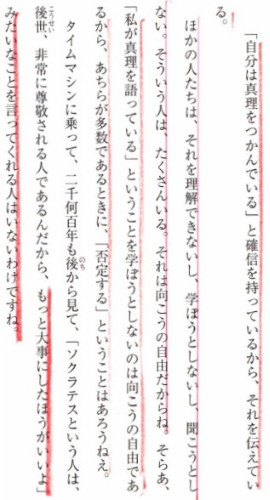 る。
「自分は真理をつかんでいる」と確信を持っているから、それを伝えてい
ほかの人たちは、それを理解できないし、学ぼうとしないし、聞こうとし
ない。そういう人は、たくさんいる。それは向こうの自由だからね。そらあ、
「私が真理を語っている」ということを学ぼうとしないのは向こうの自由であ
るから、あちらが多数であるときに、「否定する」ということはあろうねえ。
タイムマシンに乗って、二千何百年も後から見て、「ソクラテスという人は、
後世、非常に尊敬される人であるんだから、もっと大事にしたほうがいいよ」
みたいなことを言ってくれる人はいないわけですね。